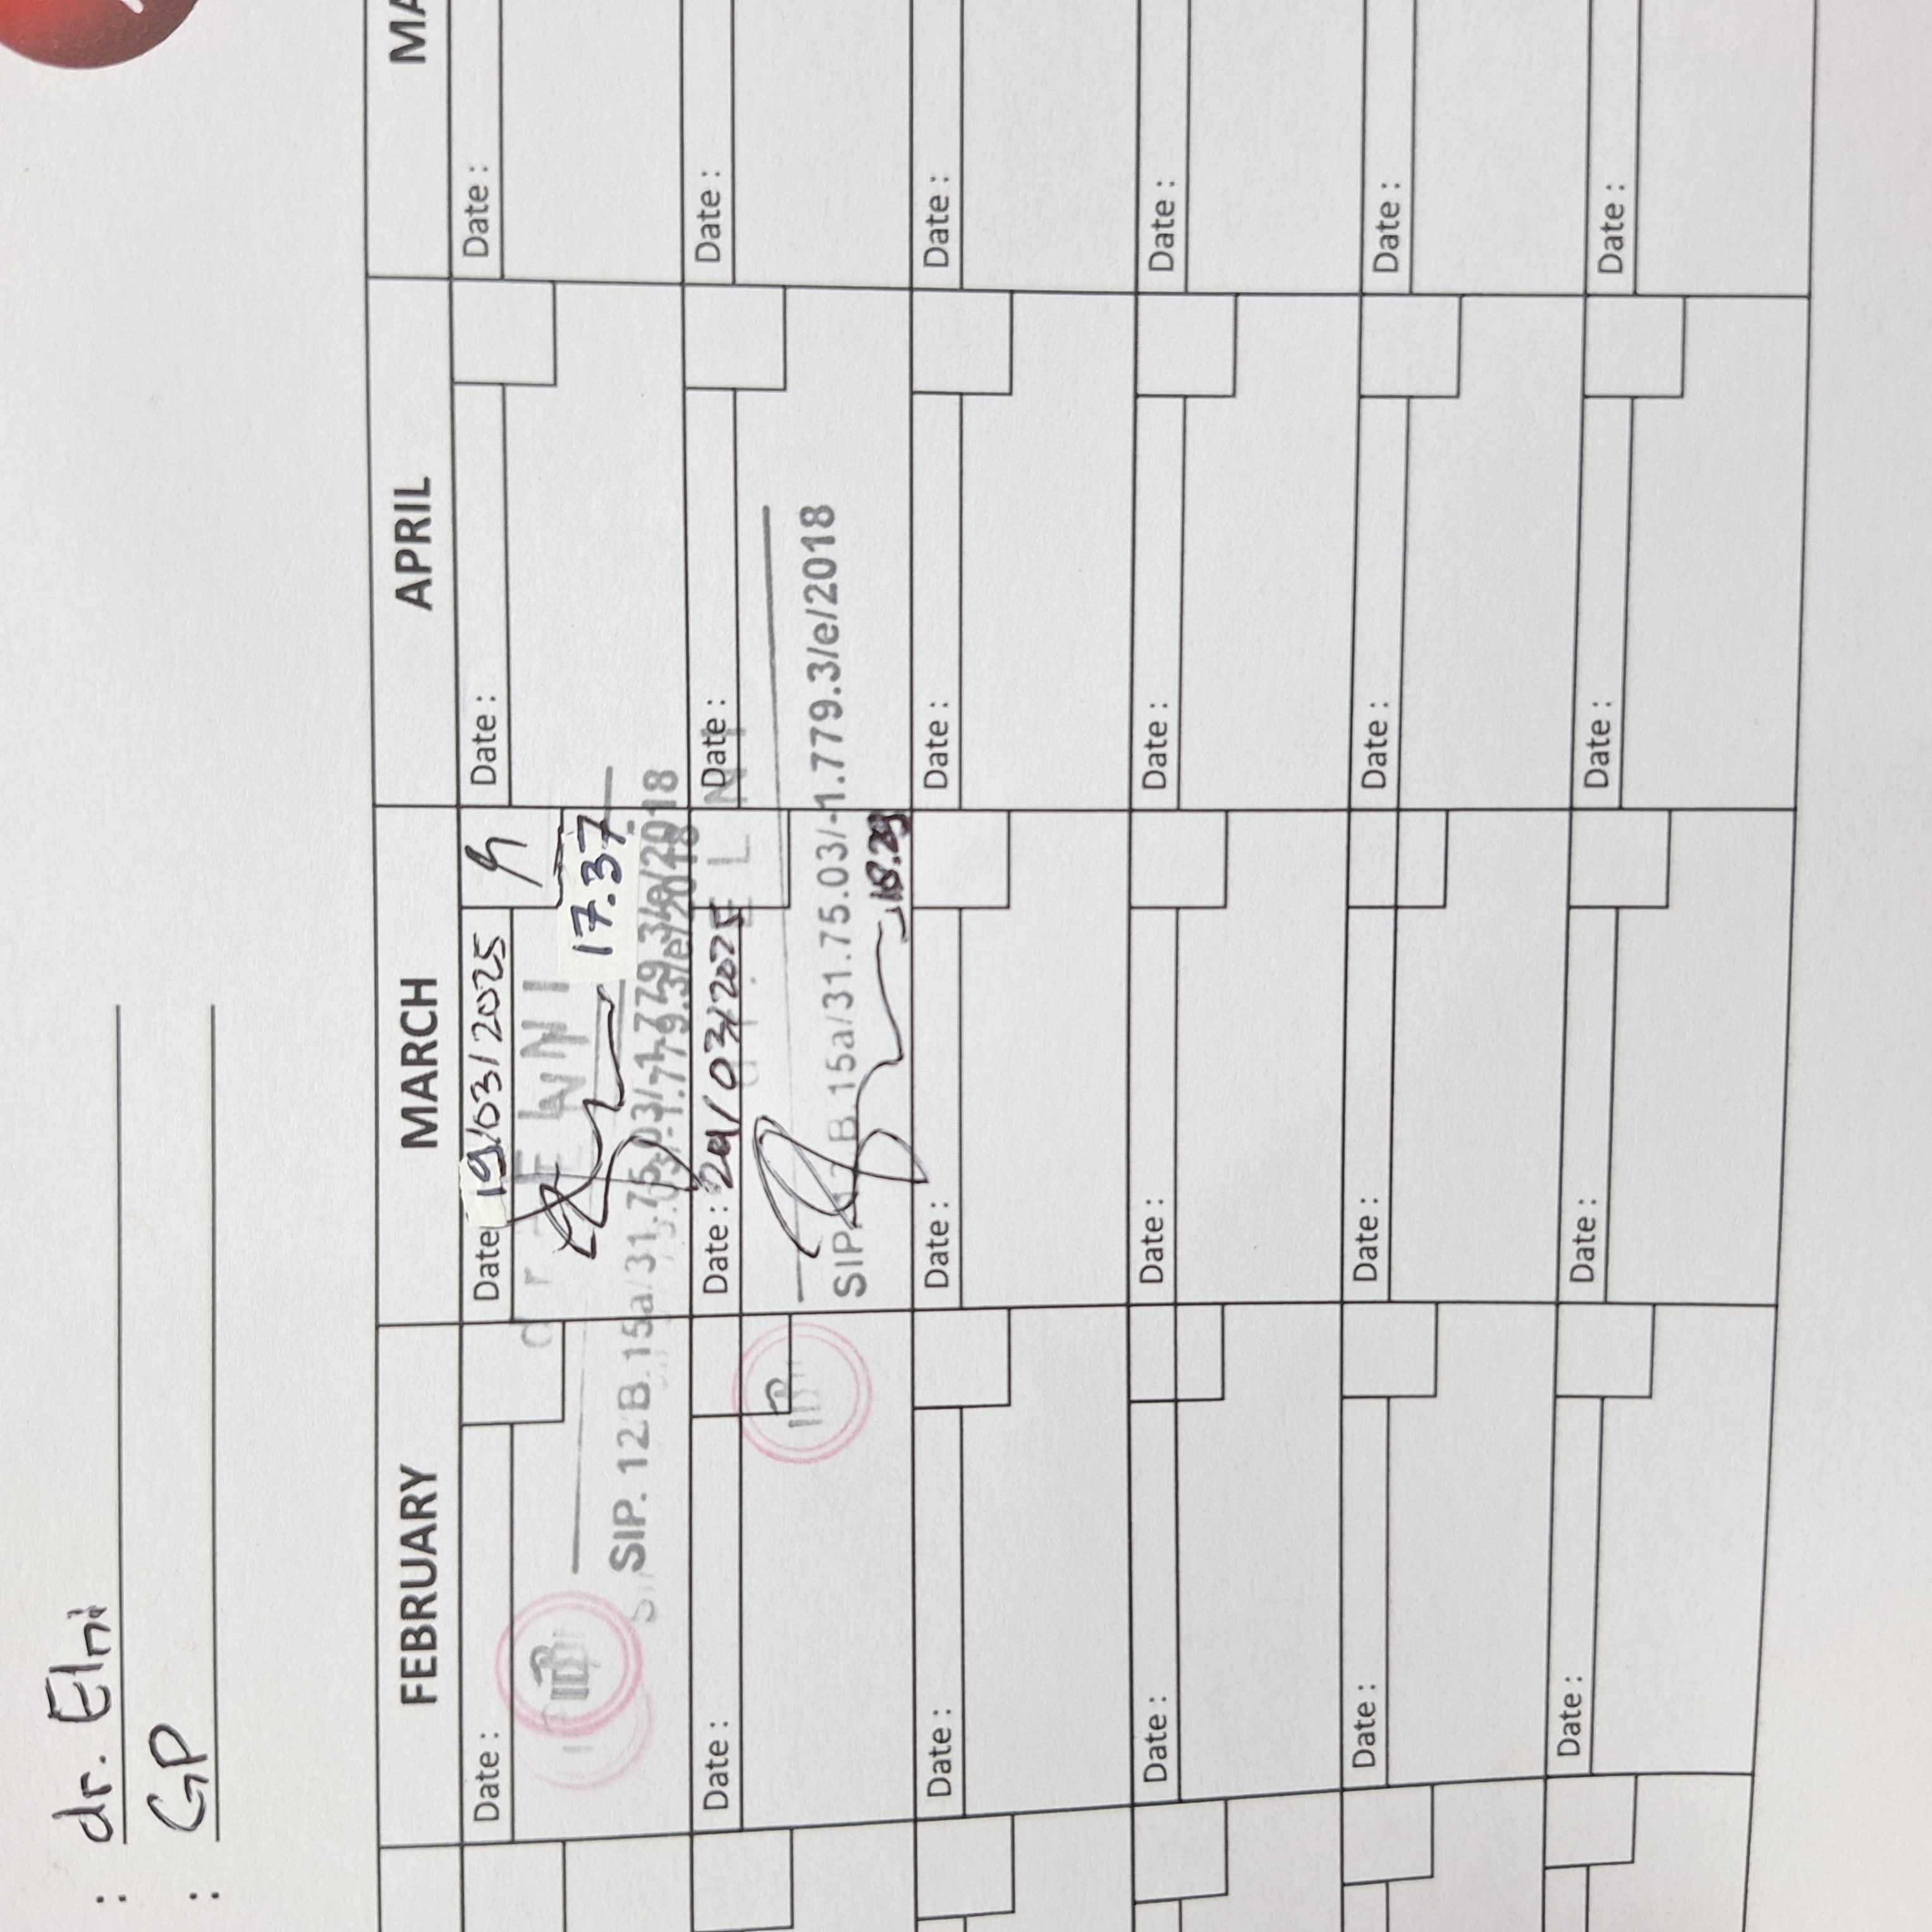 : dr. Elni
: GP
FEBRUARY MARCH APRIL MA
Date : Date 19/03/2025 Date : Date :
17.37
SIP. 12B.15a/31.75.03/-1.779.3/e/2018
Date : Date : 24/03/2025 Date : Date :
SIP. 12B.15a/31.75.03/-1.779.3/e/2018
18.29
Date : Date : Date : Date :
Date : Date : Date : Date :
Date : Date : Date : Date :
Date : Date : Date : Date :